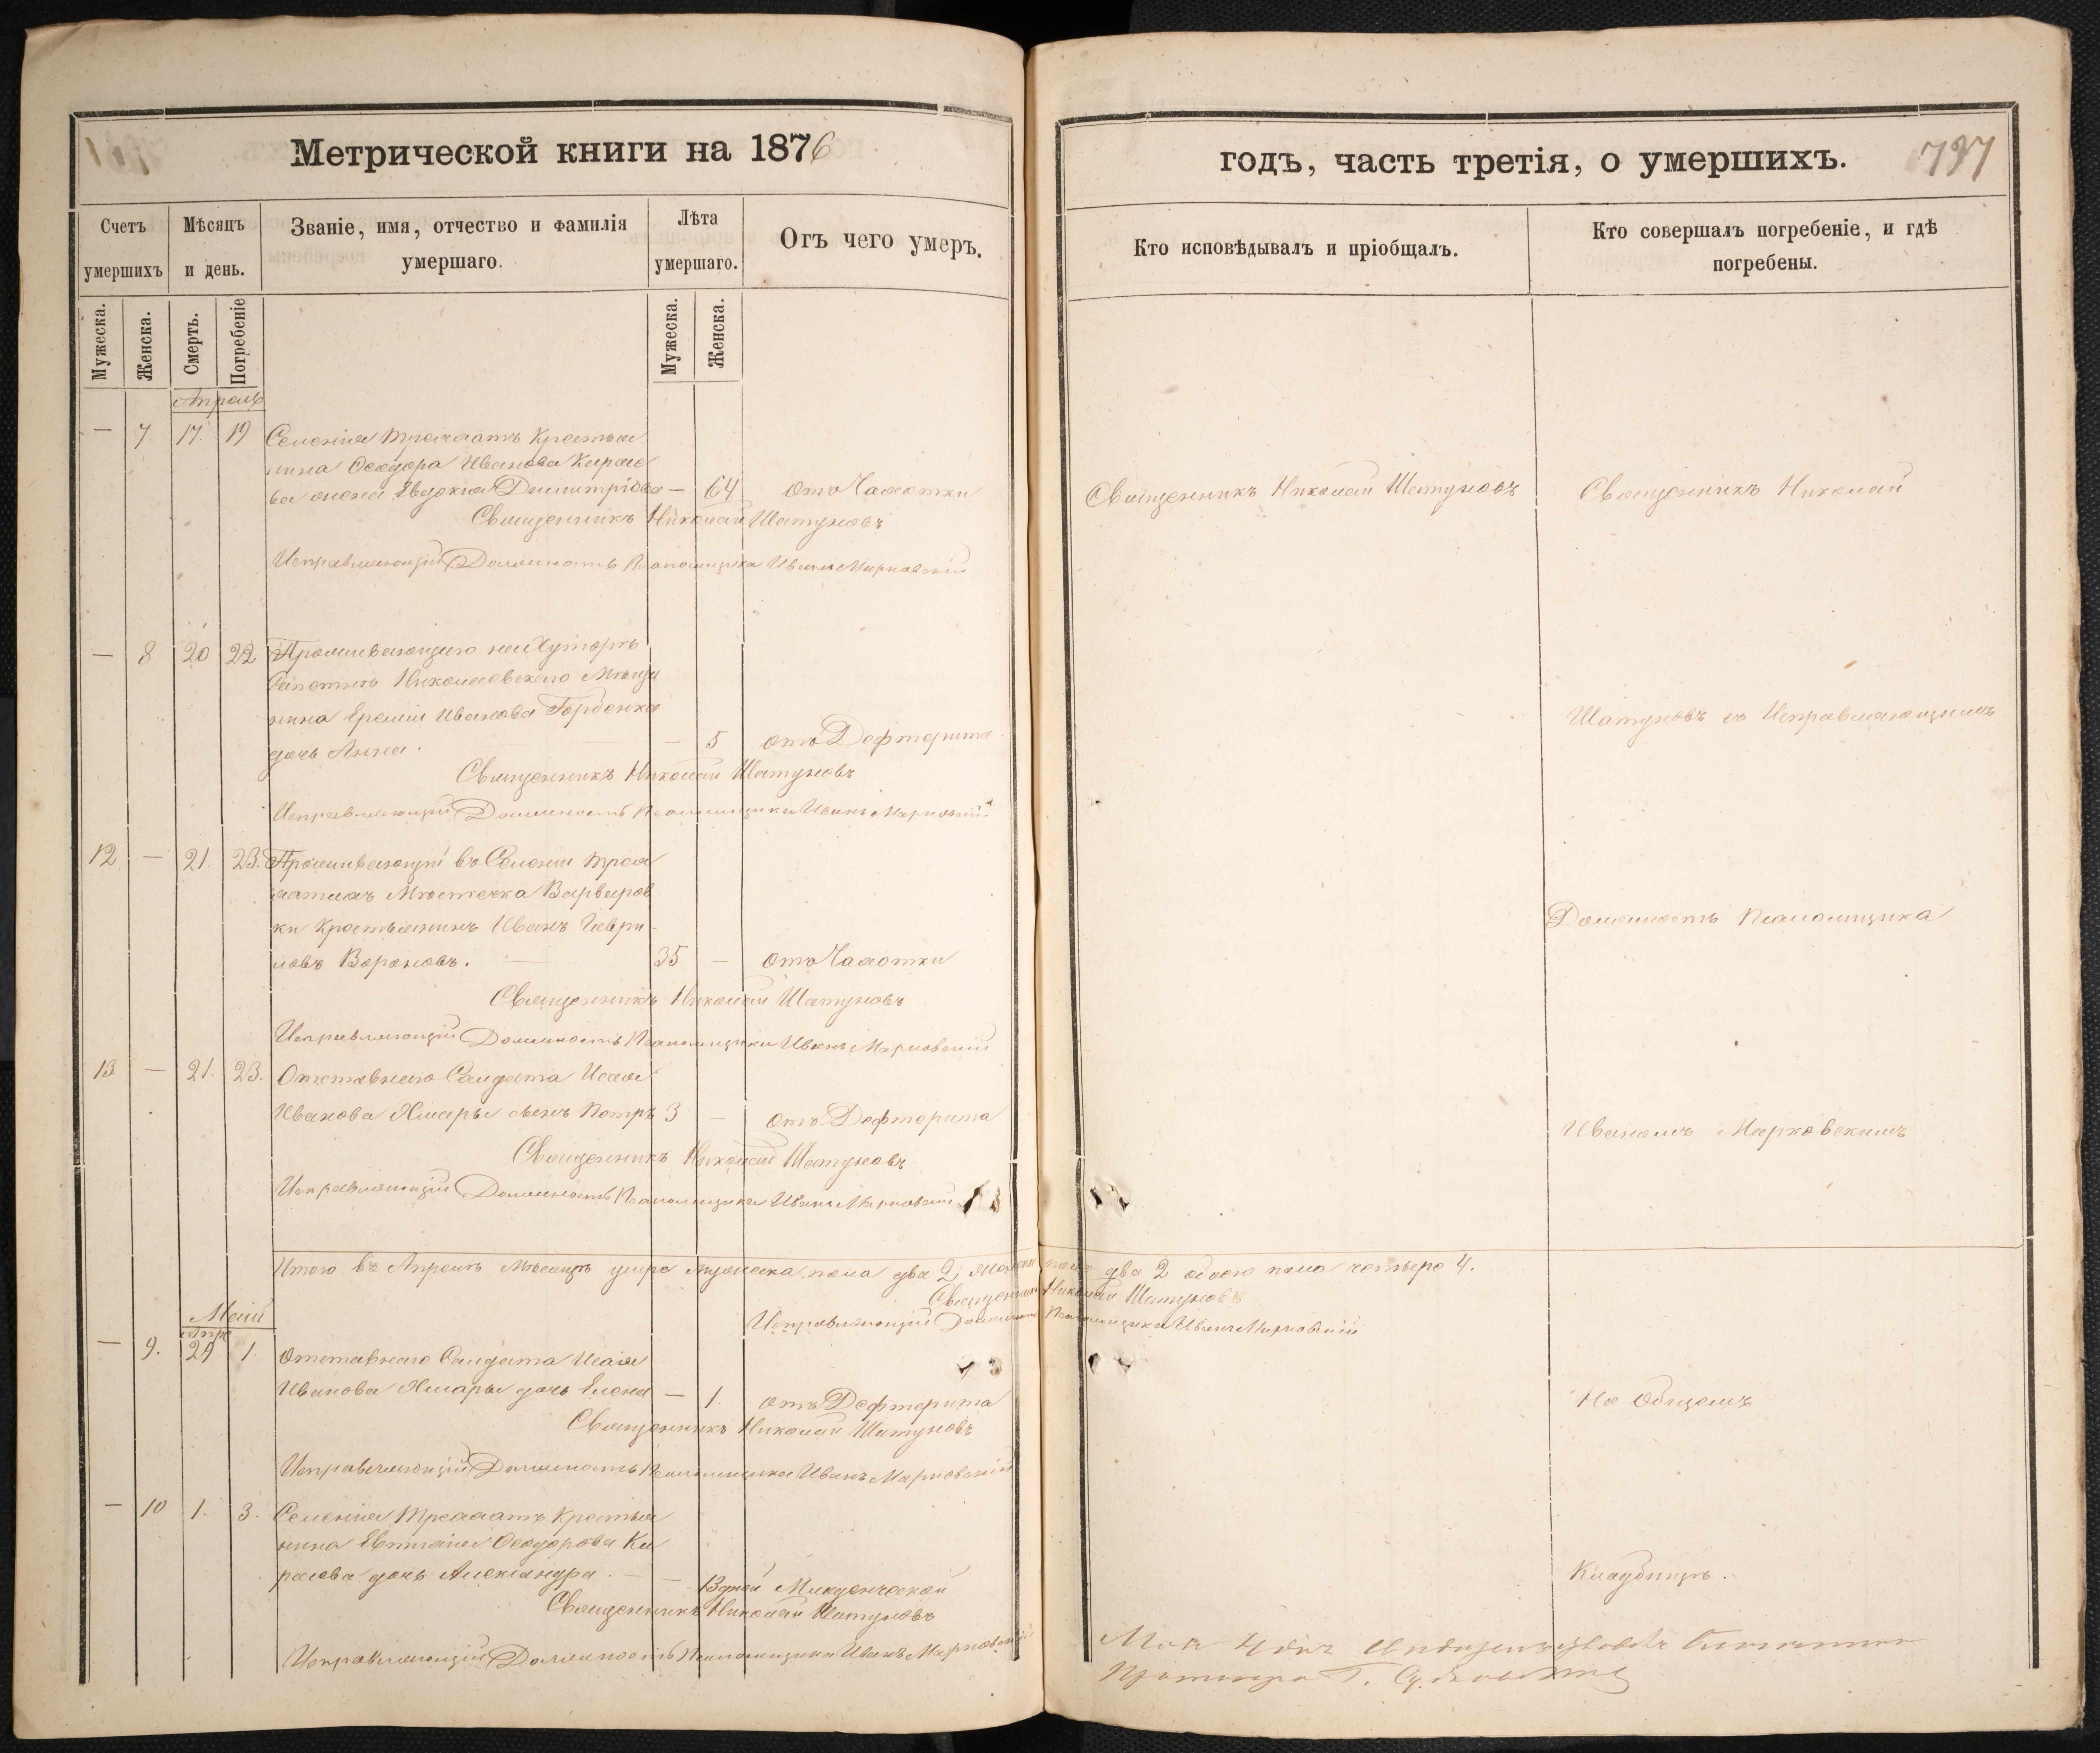 Метрической книги на 1876
годъ, часть третія, о умершихъ.
797
Счетъ умершихъ
Мѣсяцъ и день.
Званіе, имя, отчество и фамилія умершаго.
Лѣта умершаго.
Отъ чего умеръ.
Кто исповѣдывалъ и пріобщалъ.
Кто совершалъ погребеніе, и гдѣ погребены.
Мужеска.
Женска.
Смерть.
Погребеніе
Мужеска.
Женска.
Апрель
— 7. 17. 19 Селенія Трехатъ Крестья
нина Ѳеодора Иванова Карасе
ва жена Евдокія Димитріева — 64 отъ Чахотки
Священникъ Николай Шатуновъ
Исправляющій Должность Псаломщика Иванъ Марковскій
— 8 20 22 Проживающаго на Хуторѣ
Николаевскаго Мѣща
нина Еремія Иванова Горбенка
дочь Анна. — 5 отъ Дефтерита
Священникъ Николай Шатуновъ
Исправляющій Должность Псаломщика Иванъ Марковскій
12 — 21. 23. Проживающій въ Селеніи Трех
Мѣстечка Варваров
ки Крестьянинъ Иванъ Гаври-
ловъ Вороновъ. 35 — отъ Чахотки
Священникъ Николай Шатуновъ
Исправляющій Должность Псаломщика Иванъ Марковскій
13 — 21. 23. Отставнаго Солдата Исаія
Иванова Хмары сынъ Петръ 3 — отъ Дефтерита
Священникъ Николай Шатуновъ
Исправляющій Должность Псаломщика Иванъ Марковскій
Итого въ Апрелѣ Мѣсяцѣ умре мужеска пола два 2, Женска пола два 2 обоего пола четыре 4.
Священникъ Николай Шатуновъ
Исправляющій Должность Псаломщика Иванъ Марковскій
Май
Апре
— 9. 29 1. Отставнаго Солдата Исаія
Иванова Хмары дочь Елена — 1. отъ Дефтерита
Священникъ Николай Шатуновъ
Исправляющій Должность Псаломщика Иванъ Марковскій
— 10 1. 3. Селенія Трехатъ Крестья
нина Ѳеодорова Ка
расева дочь Александра. — — 13 дней Младенческой
Священникъ Николай Шатуновъ
Исправляющій Должность Псаломщика Иванъ Марковскій
Священникъ Николай Шатуновъ
Священникъ Николай
Шатуновъ съ Исправляющимъ
Должность Псаломщика
Иваномъ Марковскимъ
На Общемъ
Кладбищѣ.